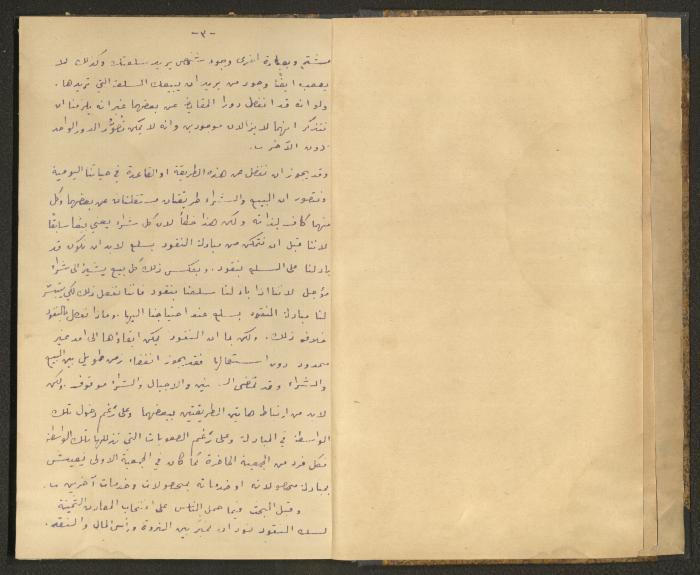 -٣-
مشتر وبعبارة اخرى وجود شخص يريد سلعتك وكذلك لا
يصعب ايضًا وجود من يريد ان يبيعك السلعة التي تريدها.
ولو انه قد انفصل دورا المقايضة عن بعضهما غير انه يلزمنا ان
نتذكر انهما لا يزالان موجودين وانه لا يمكن تصوّر الدور الواحد
دون الآخر.
وقد يجوز ان نغفل عن هذه الطريقة او القاعدة في حياتنا اليومية
ونتصور ان البيع والشراء طريقتان مستقلتان عن بعضهما وكل
منهما كاف لذاته ولكن هذا خطأ لان كل شراء يعني بيعًا سابقًا
لاننا قبل ان نتمكن من مبادلة النقود بسلع لابد ان نكون قد
بادلنا على السلع بنقود. وبعكس ذلك كل بيع يشير الى شراء
مؤجل لاننا اذا بادلنا سلعنا بنقود فاننا نفعل ذلك لكي يتيسر
لنا مبادلة النقود بسلع عند احتياجنا اليها. وماذا نفعل بالنقود
خلاف ذلك. ولكن بما ان النقود يمكن ابقاؤها الى امد غير
محدود دون استعمالها فقد يجوز انقضاء زمن طويل بين البيع
والشراء وقد تمضي السنين والاجيال والشراء موقوف. ولكن
لابد من ارتباط هاتين الطريقتين ببعضهما وعلى رغم دخول تلك
الواسطة في المبادلة وعلى رغم الصعوبات التي تذللها تلك الواسطة
فكل فرد من الجمعية الحاضرة كما كان في الجمعية الاولى يعيش
بمبادلة محصولاته او خدماته بمحصولات وخدمات آخرين.
وقبل البحث فيما حمل الناس على انتخاب المعادن الثمينة
لسك النقود نود ان نميز بين الثروة ورأس المال والنقد.